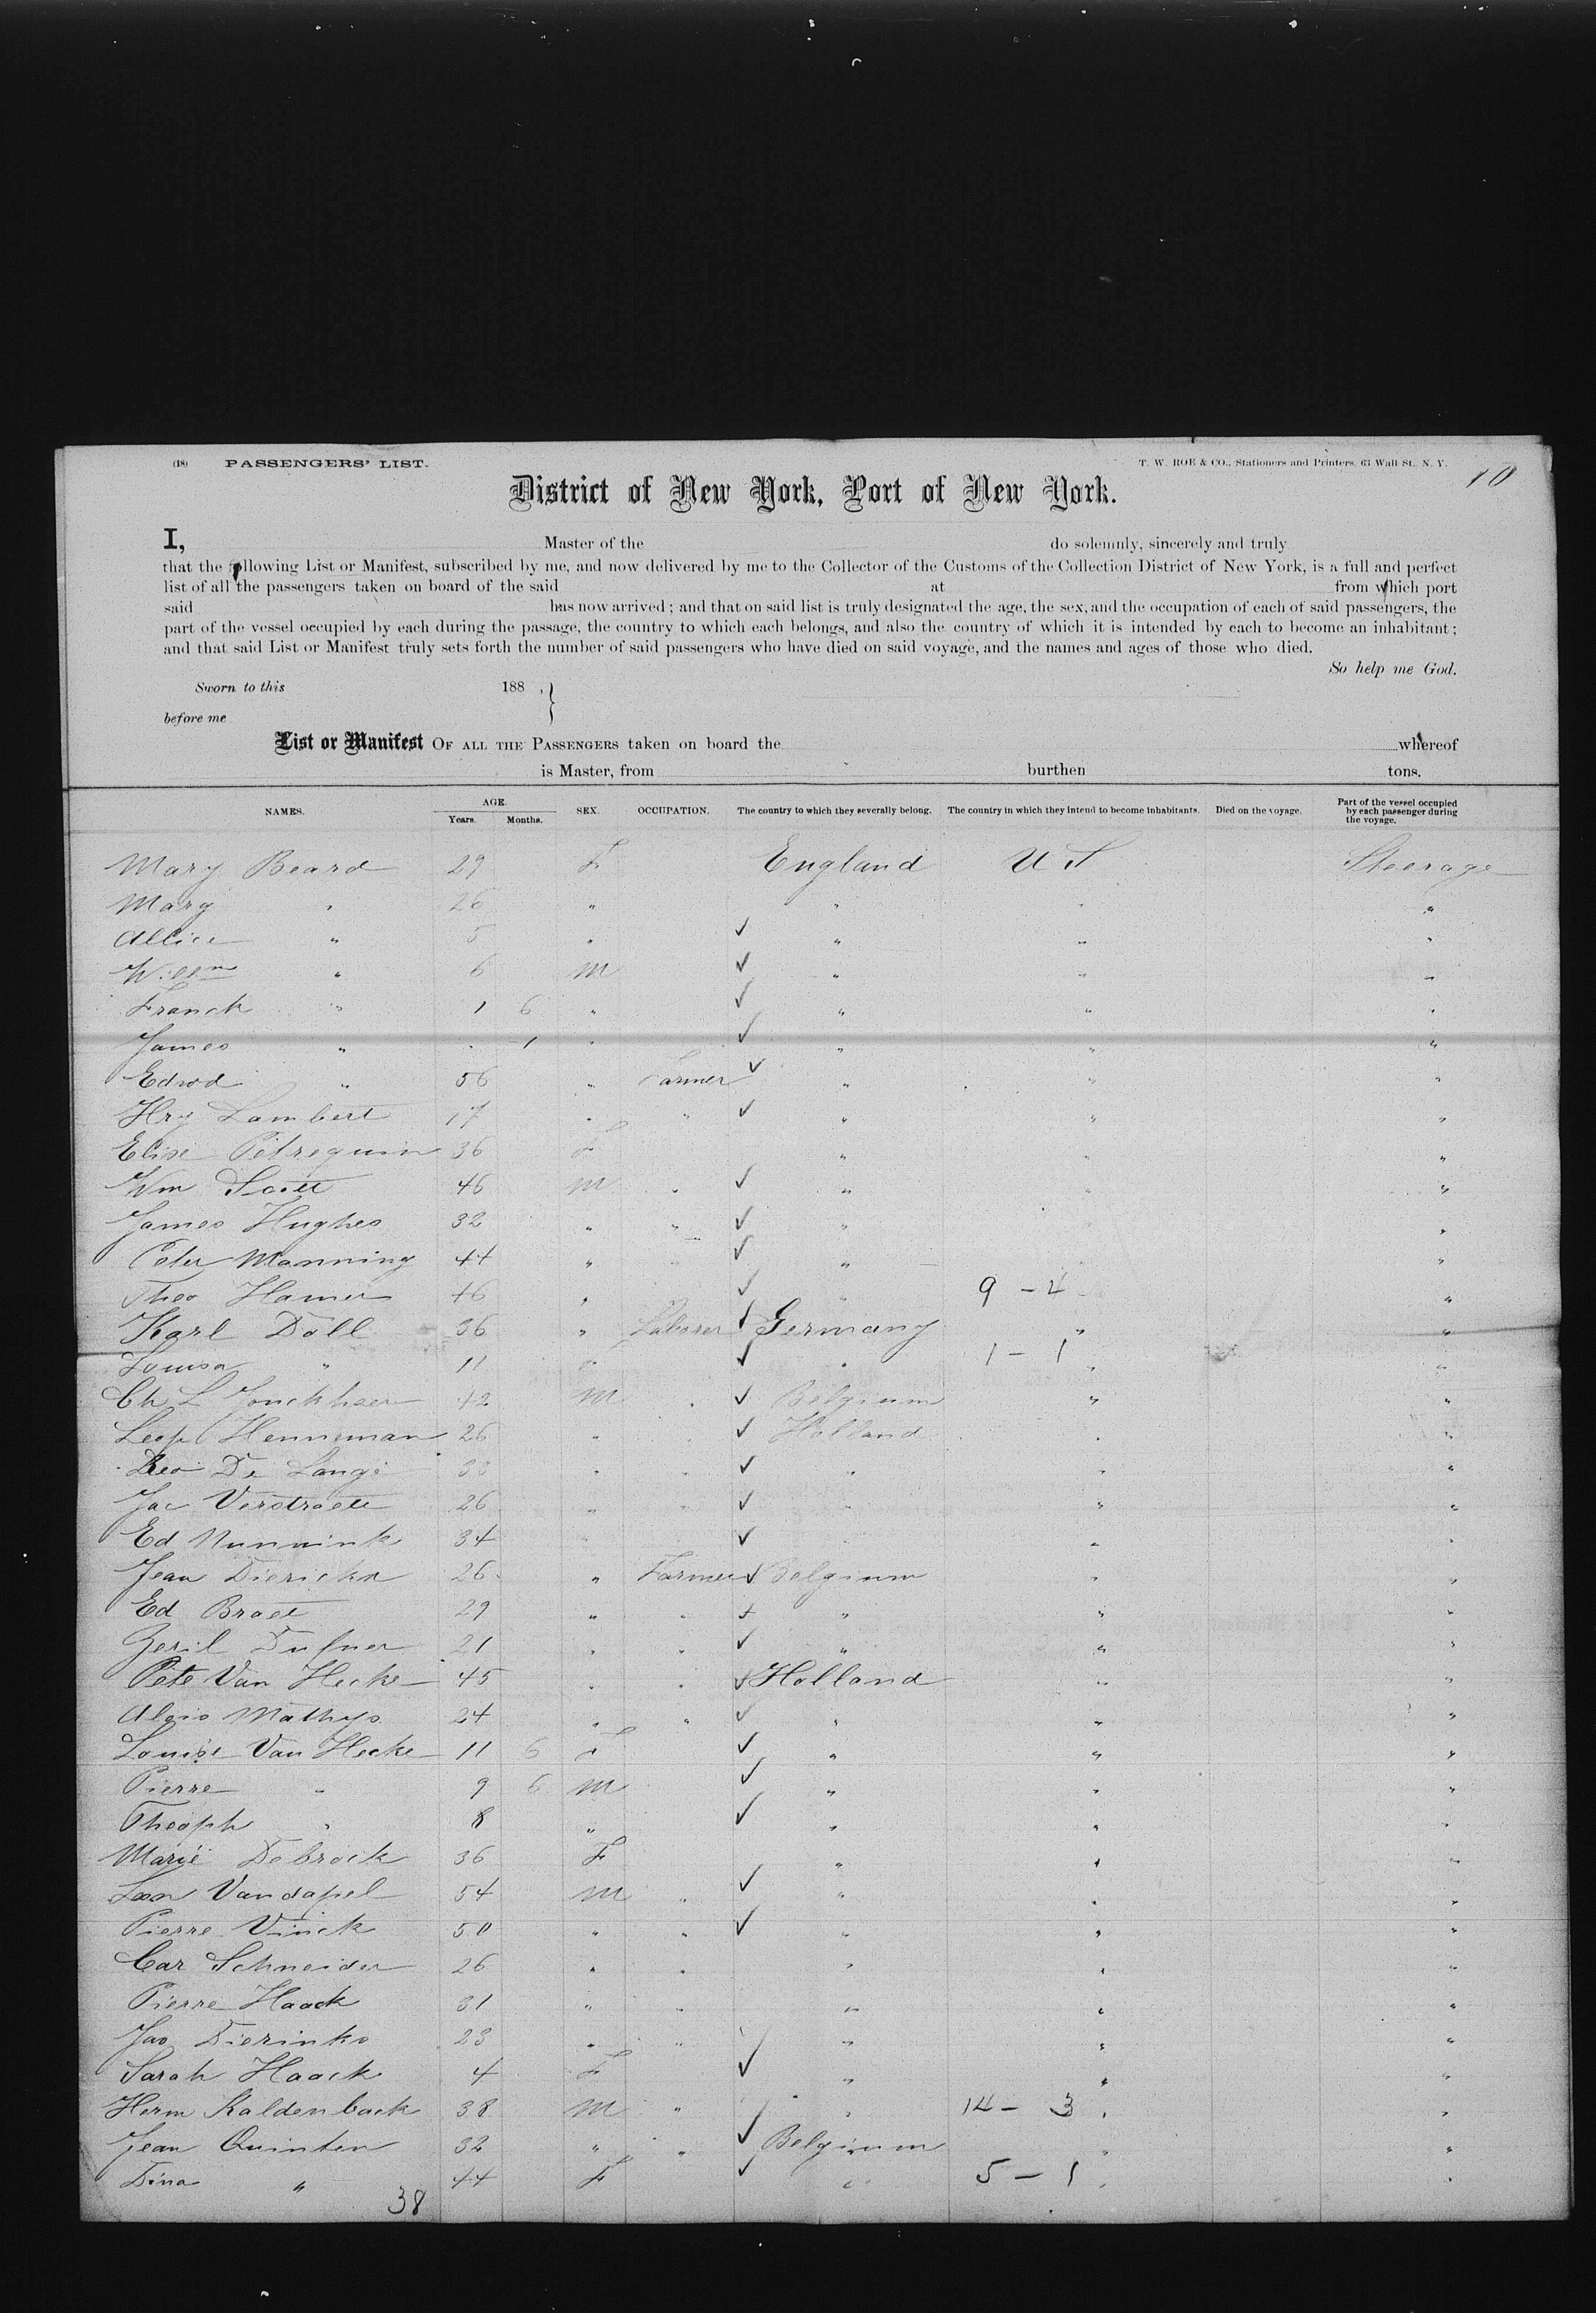 (18) PASSENGERS' LIST. T. W. ROE & CO., Stationers and Printers, 63 Wall St., N. Y. 10
District of New York, Port of New York.
I, Master of the do solemnly, sincerely and truly
that the following List or Manifest, subscribed by me, and now delivered by me to the Collector of the Customs of the Collection District of New York, is a full and perfect
list of all the passengers taken on board of the said at from which port
said has now arrived; and that on said list is truly designated the age, the sex, and the occupation of each of said passengers, the
part of the vessel occupied by each during the passage, the country to which each belongs, and also the country of which it is intended by each to become an inhabitant;
and that said List or Manifest truly sets forth the number of said passengers who have died on said voyage, and the names and ages of those who died.
So help me God.
Sworn to this 188 . }
before me
List or Manifest OF ALL THE PASSENGERS taken on board the whereof
is Master, from burthen tons.
NAMES. AGE. Years. Months. SEX. OCCUPATION. The country to which they severally belong. The country in which they intend to become inhabitants. Died on the voyage. Part of the vessel occupied by each passenger during the voyage.
Mary Beard 29 F England U S Steerage
Mary " 26 " " " "
Allice " 5 " ✓ " " "
Willm " 6 M ✓ " " "
Franck " 1 6 " ✓ " " "
James " . 1 " ✓ " " "
Edwd " 56 " Farmer ✓ " " "
Hry Lambert 17 " " ✓ " " "
Elise Petrequin 36 F " " "
Wm Scott 46 M " ✓ " " "
James Hughes 32 " " ✓ " "
Peter Manning 44 " " ✓ " "
Theo Hamer 46 " ✓ " 9 - 4 "
Karl Doll 36 " Laborer ✓ Germany " "
Louisa " 11 F ✓ " 1 - 1 " "
Ch L Jonckheer 42 M " ✓ Belgium " "
Leop Henneman 26 " " ✓ Holland " "
Leo De Lange 33 " " ✓ " " "
Jac Verstraete 26 " " ✓ " " "
Ed Nunnink 34 " ✓ " " "
Jean Dierickx 26 " Farmer ✓ Belgium " "
Ed Braet 29 " " ✓ " " "
21 " " ✓ " " "
Pete Van Hecke 45 " " ✓ Holland " "
Alois Mathys 24 " " ✓ " " "
Louise Van Hecke 11 6 F ✓ " " "
Pierre " 9 6 M ✓ " " "
Theoph " 8 " ✓ " " "
Marie Debrock 36 F " " "
Vandapel 54 M " ✓ " " "
Pierre Vinck 50 " " ✓ " " "
Car Schneider 26 " " " " "
Pierre Haack 31 " " " " "
Jas Dierinks 23 " " " " "
Sarah Haack 4 F ✓ " " "
Herm Kaldenback 38 M " " 14 - 3 " "
Jean Quinten 32 " " ✓ Belgium " "
Dina " 44 F ✓ " 5 - 1 " "
38